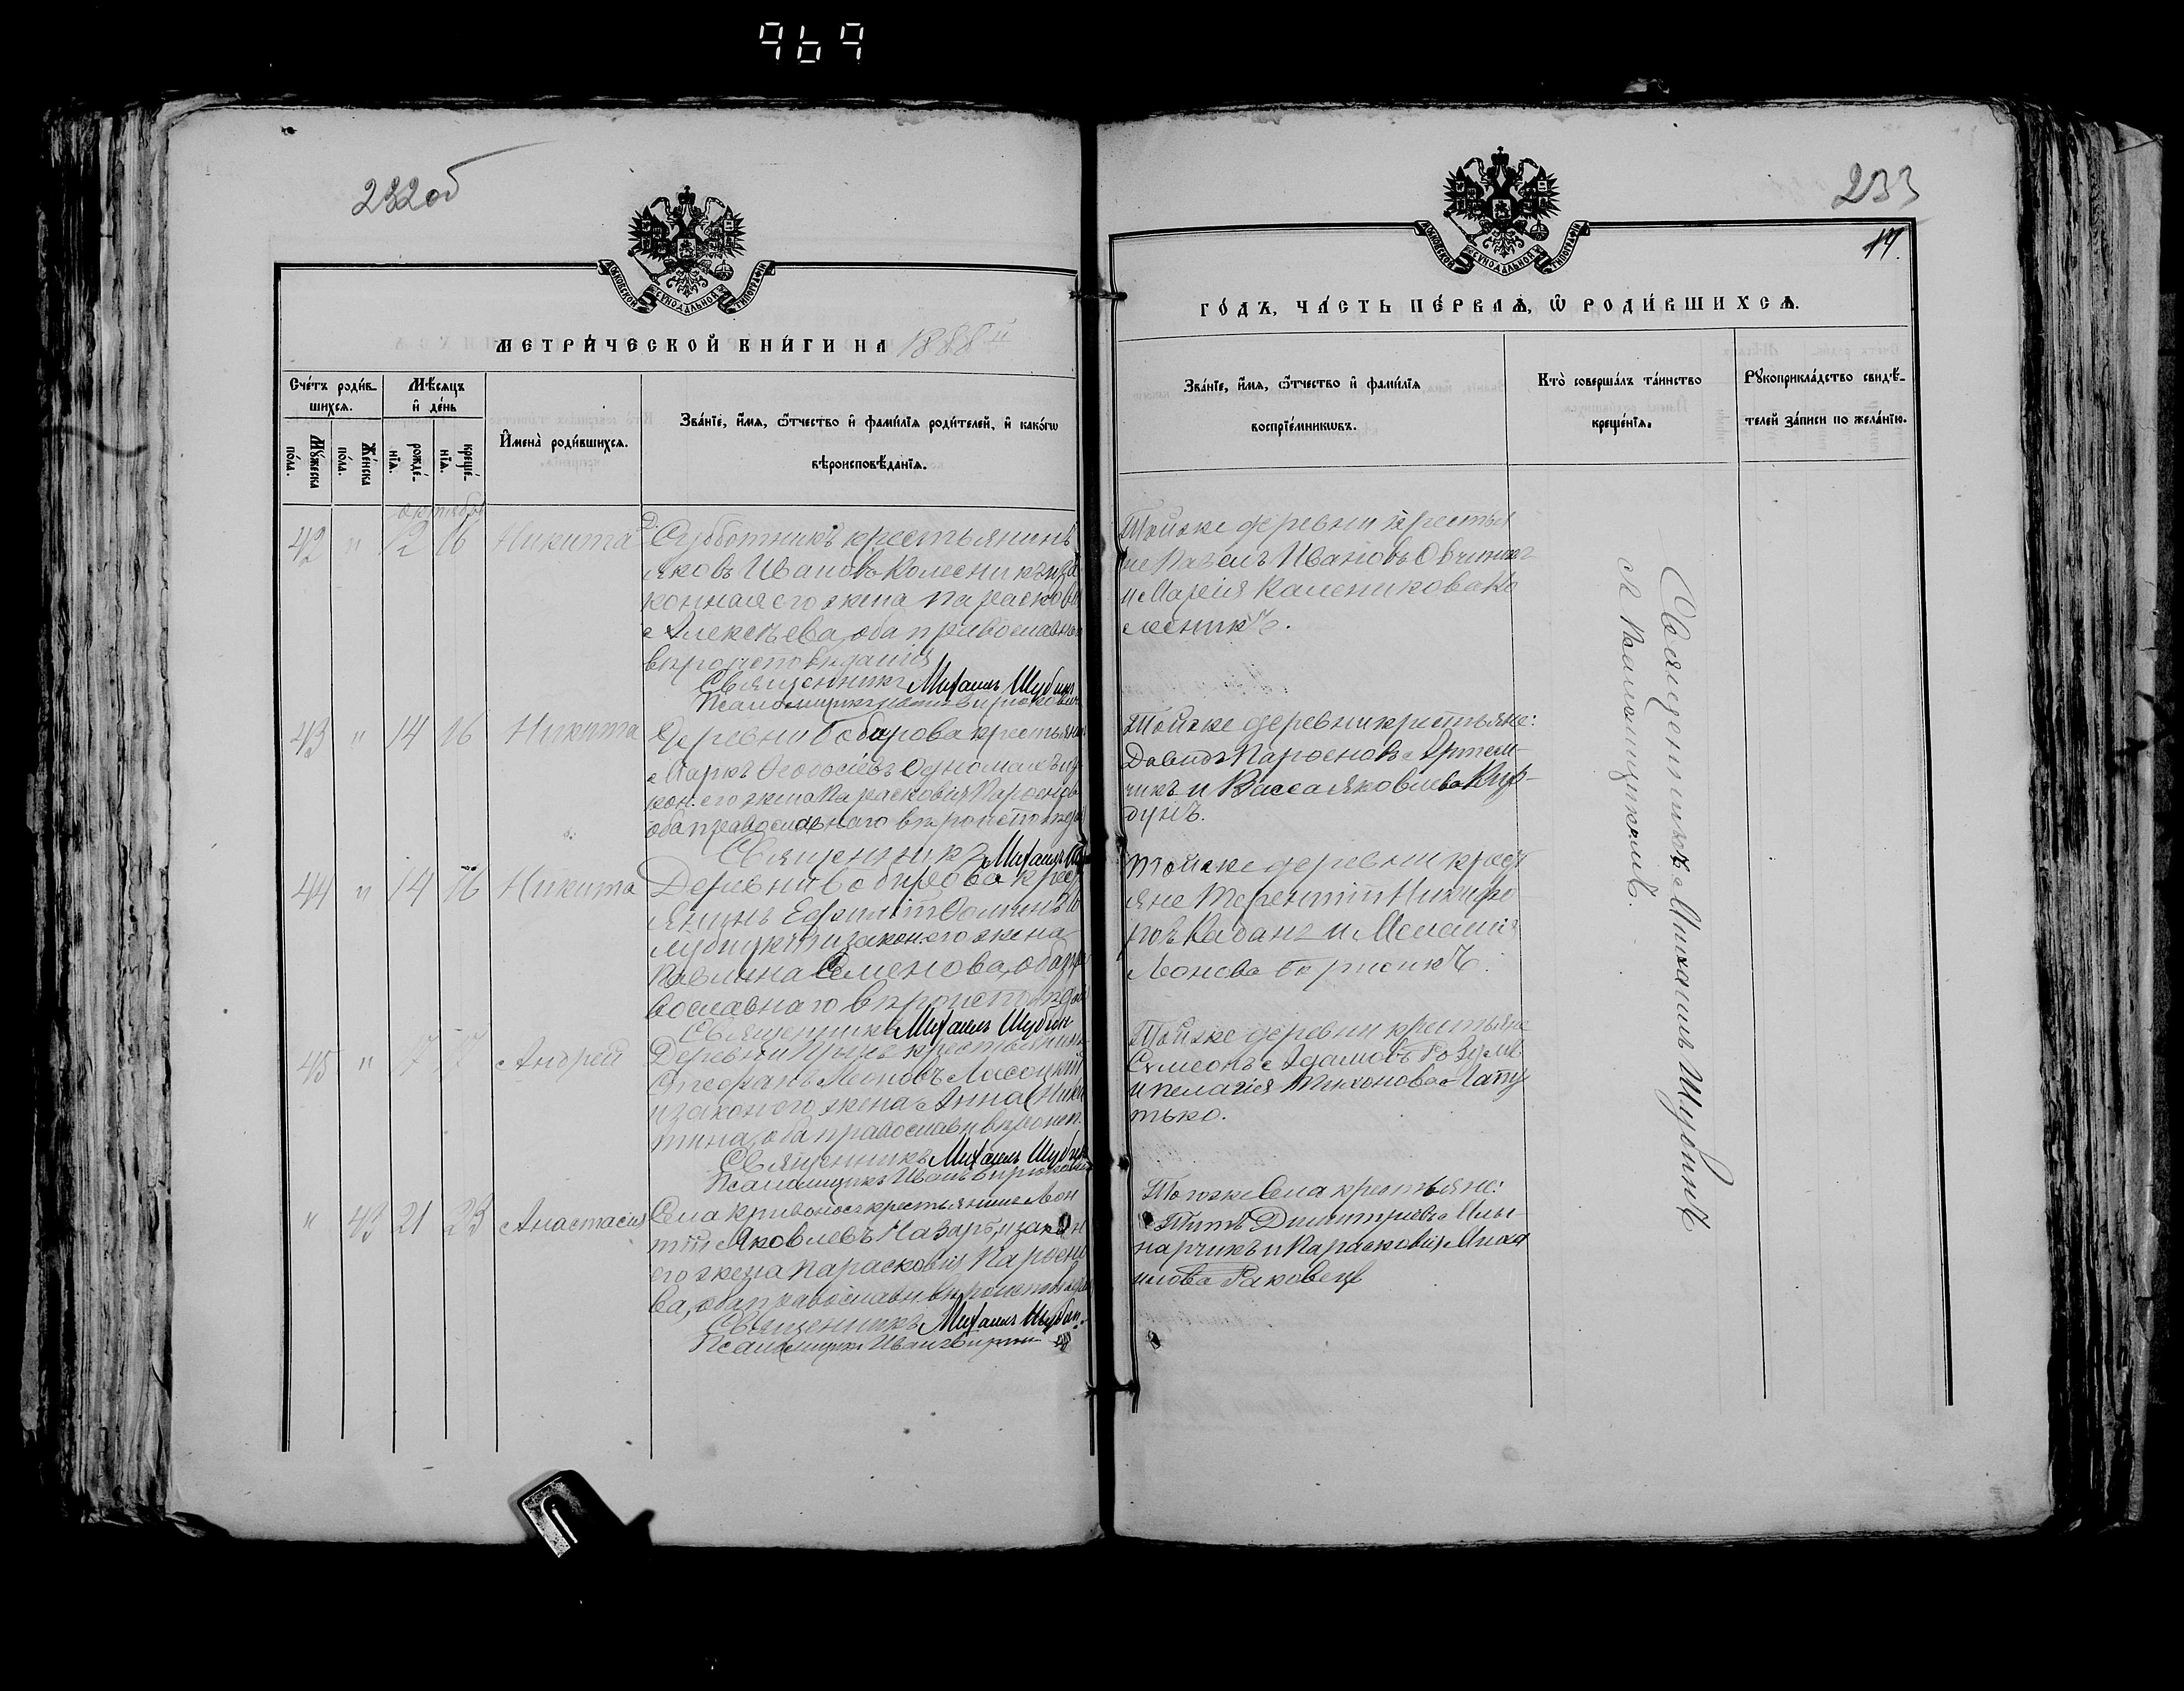 969
232об
МОСКОВСКОЙ СѴНОДАЛЬНОЙ ТИПОГРАФІИ
МЕТРИ́ЧЕСКОЙ КНИ́ГИ НА 1888 й
Сче́тъ роди́в-
шихсѧ.
Мѣ́сѧцъ
и҆ де́нь
Мꙋ́жеска
по́ла.
Же́нска
по́ла.
рожде́-
нїѧ.
креще́-
нїѧ.
И҆мена̀ роди́вшихсѧ.
Зва́нїе, и҆́мѧ, ѻ҆́тчество и҆ фами́лїѧ роди́телей, и҆ како́гѡ
вѣроисповѣ́данїѧ.
октябрь
42 " 12 16 Никита Д. Субботникъ крестьянинъ
Яковъ Ивановъ Колесникъ и за
конная его жена Парасковія
Алексѣева, оба православна
вѣроисповѣданія
Священникъ Михаилъ Шубинъ
Псаломщикъ
43 " 14 16 Никита Деревни крестьянинъ
Маркъ Ѳеодосіевъ и за
кон. его жена Парасковія Парѳенова
оба православнаго вѣроисповѣда
Священникъ Михаилъ
44 " 14 16 Никита Деревни крест
янинъ Ефимій
и закон. его жена
Павлина Семенова, оба пра
вославнаго вѣроисповѣдан
Священникъ Михаилъ Шубин
45 " 17 17 Андрей Деревни крестьянинъ
Стефанъ Леоновъ Лисоцкій
и закон его жена Анна Ники
тина, оба православн вѣроисп.
Священникъ Михаилъ Шубин
Псаломщикъ Иванъ Бирюкович
" 43 21 23 Анастасія Села Кривоносъ крестьянинъ Леон
тій Яковлевъ Назаръ, и закон
его жена Парасковія Парѳено
ва, оба православн. вѣроисповѣдан
Священникъ Михаилъ Шубин.
Псаломщикъ Иванъ
233
17.
МОСКОВСКОЙ СѴНОДАЛЬНОЙ ТИПОГРАФІИ
ГО́ДЪ, ЧА́СТЬ ПЕ́РВАѦ, Ѽ РОДИ́ВШИХСѦ.
Зва́нїе, и҆́мѧ, ѻ҆́тчество и҆ фами́лїѧ
воспрїе́мникѡвъ.
Кто̀ соверша́лъ та́инство
креще́нїѧ.
Рꙋкоприкла́дство свидѣ́-
телей за́писи по жела́нїю.
Тойже деревни крестья
не Павелъ Ивановъ
и Марія Каленикова Ко
лесникъ.
Тойже деревни крестьяне:
Давидъ Парѳеновъ Артем-
чикъ и Васса Яковлева Кур-
дунъ.
Тойже деревни крест
яне Терентій Никифо
ровъ Кабанъ и Меланія
Леонова Борисикъ.
Тойже деревни крестьяне
Симеонъ Адамовъ
и Пелагія Тихонова Лапу
тько.
Тогоже Села крестьяне:
Титъ Димитріевъ Мли-
нарчикъ и Парасковія Миха
илова Раковецъ
Священникъ Михаилъ Шубинъ
съ Псаломщикомъ.